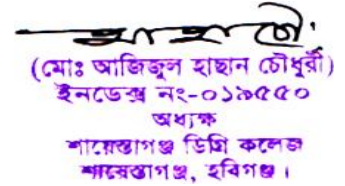 (মোঃ আজিজুল হাছান চৌধুরী)
ইনডেক্স নং-০১৯৫৫০
অধ্যক্ষ
শায়েস্তাগঞ্জ ডিগ্রি কলেজ
শায়েস্তাগঞ্জ, হবিগঞ্জ।